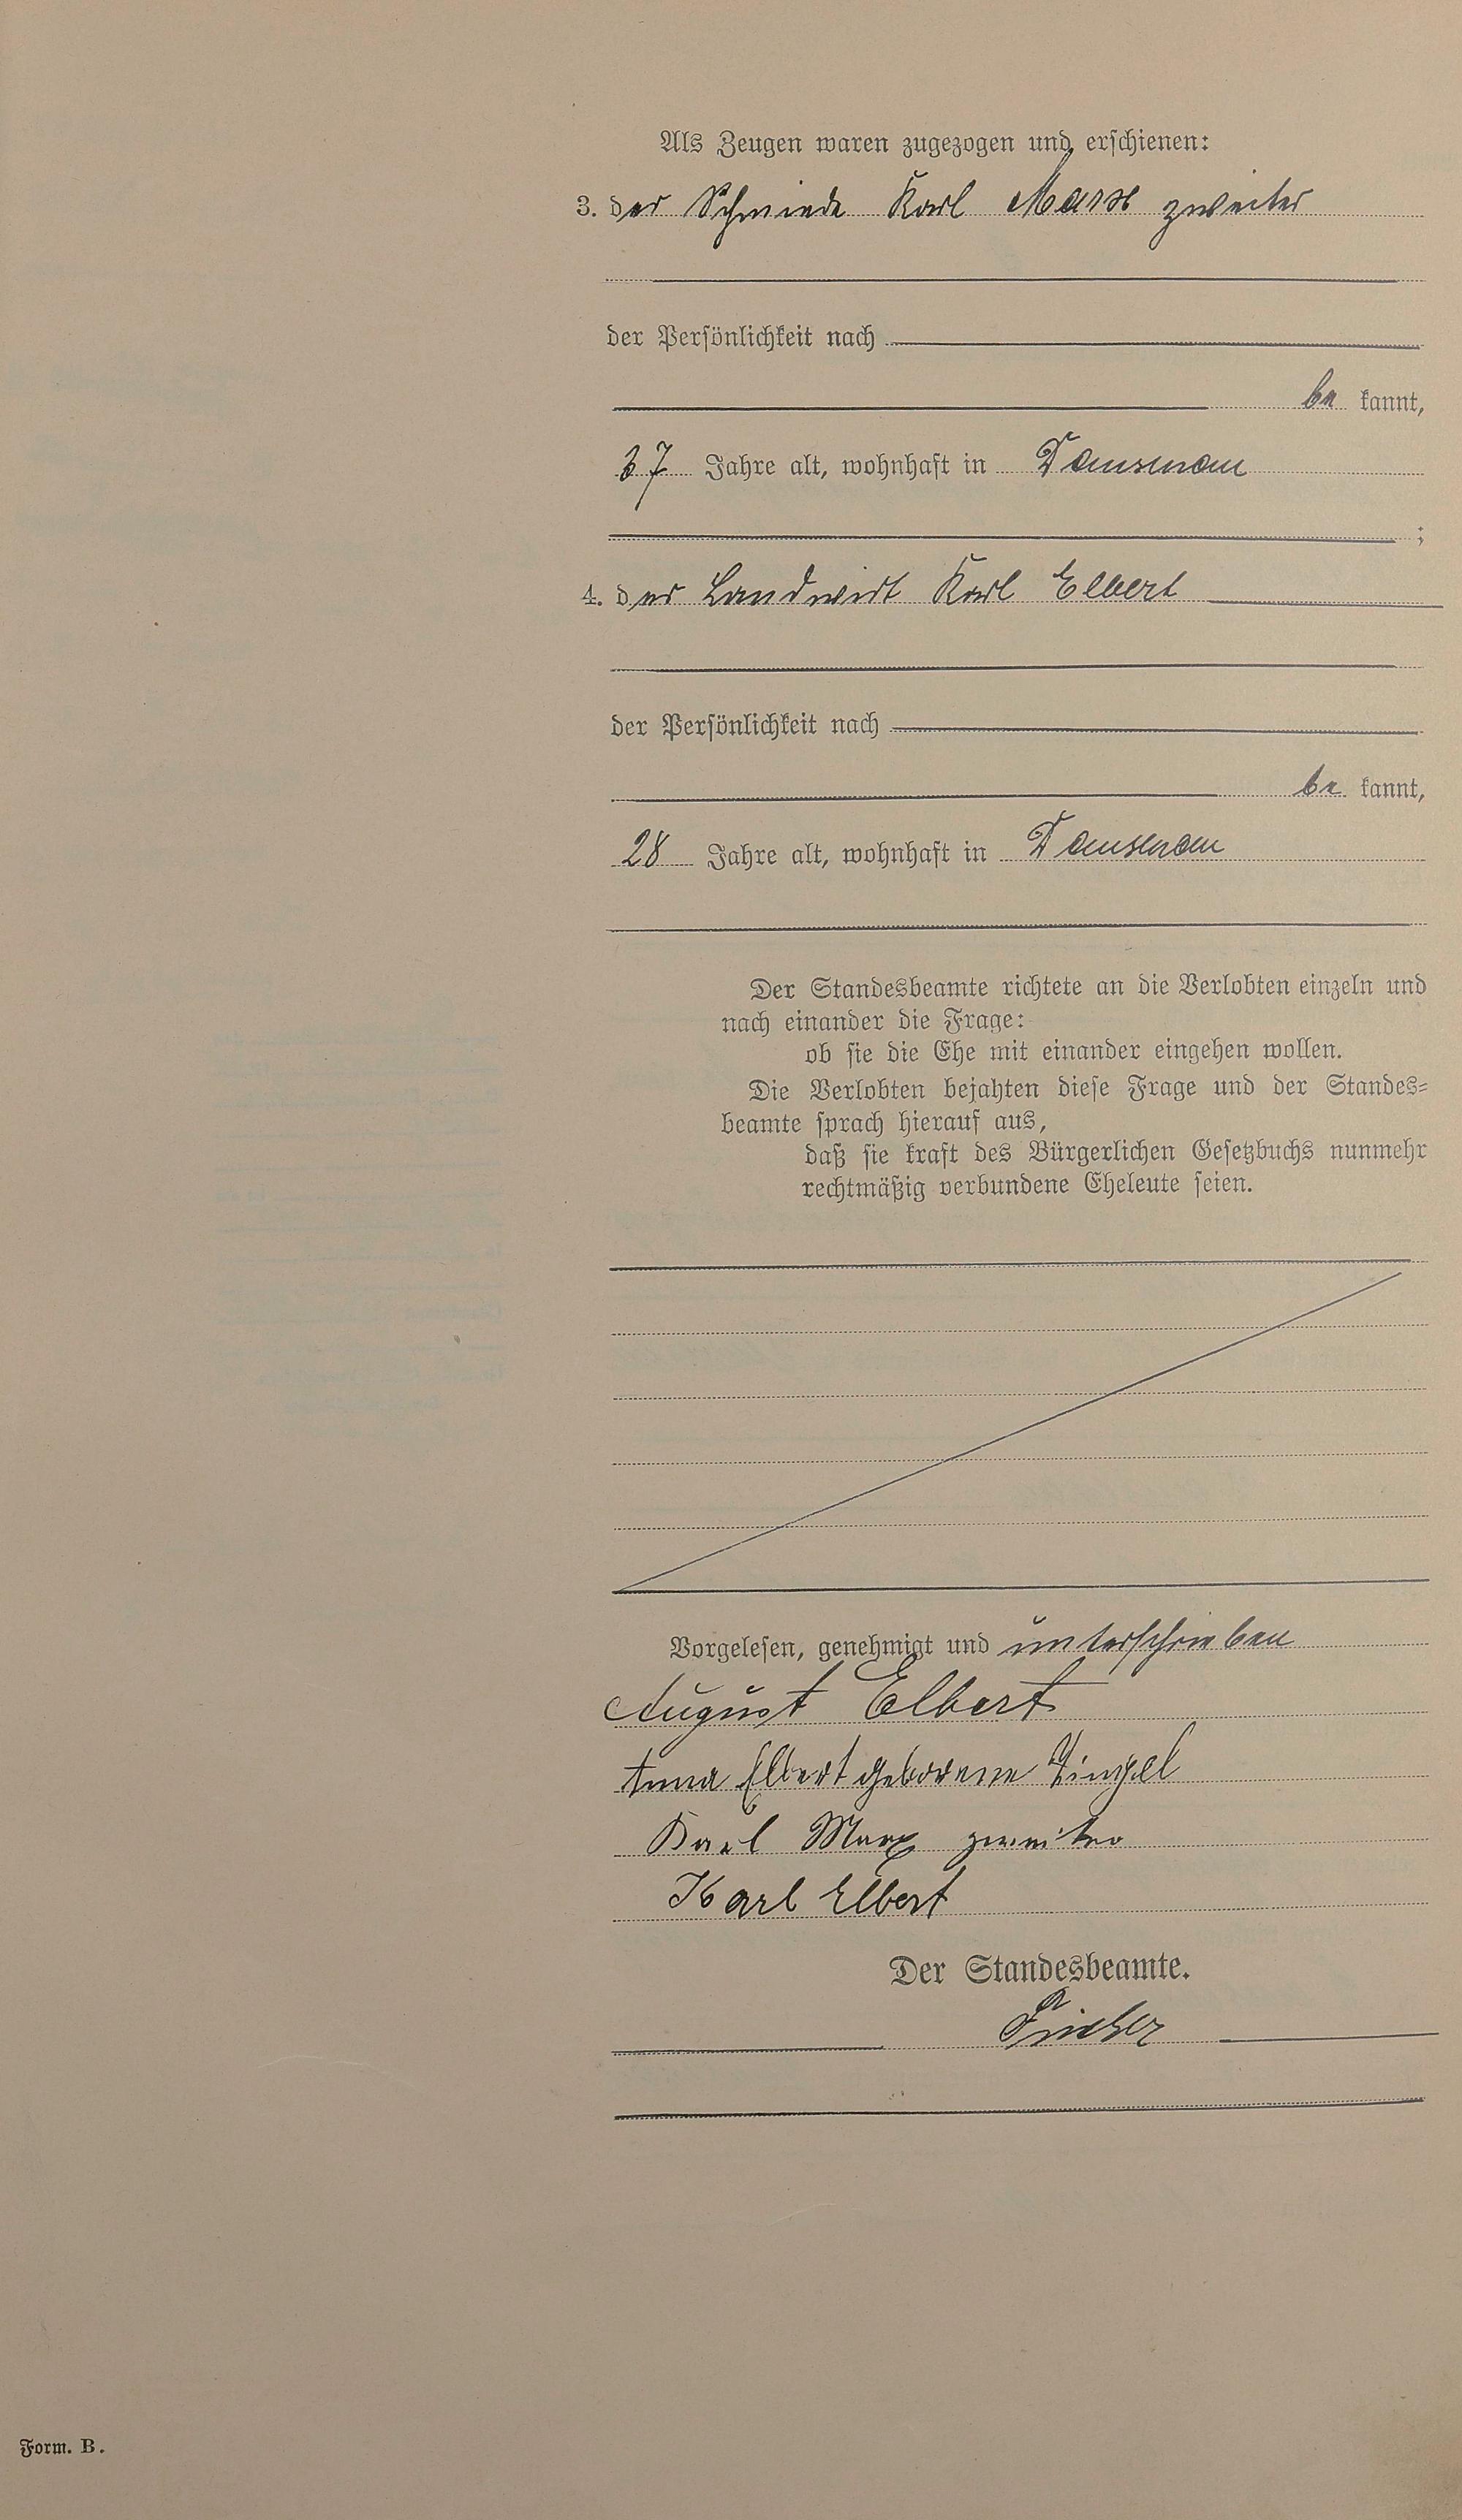 Als Zeugen waren zugezogen und erschienen:
3. der Schmiede Karl Marx zweiter
der Persönlichkeit nach
be kannt,
37 Jahre alt, wohnhaft in Dausenau
;
4. der Landwirt Karl Elbert
der Persönlichkeit nach
be kannt,
28 Jahre alt, wohnhaft in Dausenau
Der Standesbeamte richtete an die Verlobten einzeln und
nach einander die Frage:
ob sie die Ehe mit einander eingehen wollen.
Die Verlobten bejahten diese Frage und der Standes=
beamte sprach hierauf aus,
daß sie kraft des Bürgerlichen Gesetzbuchs nunmehr
rechtmäßig verbundene Eheleute seien.
Vorgelesen, genehmigt und unterschrieben
August Elbert
Anna Elbert geborene
Karl Marx zweiter
Karl Elbert
Der Standesbeamte.
Form. B.